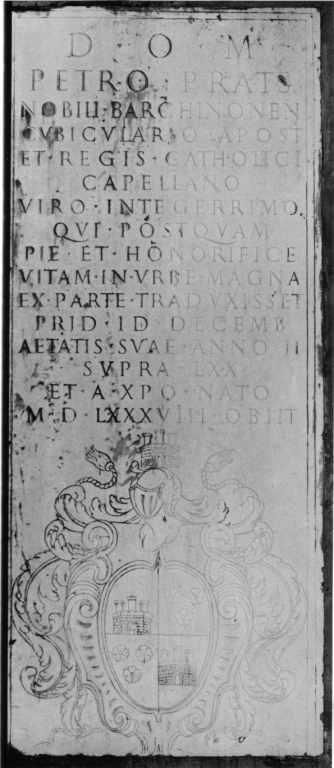 D O M
PETRO · PRATS
NOBILI · BARCHINONEN
CVBICVLARIO APOST
ET · REGIS · CATHOLICI ·
CAPELLANO
VIRO · INTEGERRIMO
QVI · POSTQVAM
PIE · ET · HONORIFICE
VITAM · IN · VRBE · MAGNA
EX · PARTE · TRADVXISSET
PRID · ID DECEMB
AETATIS · SVAE · ANNO II
SVPRA LXX
ET · A · XPO · NATO
M · D · LXXXVIII · OBIIT